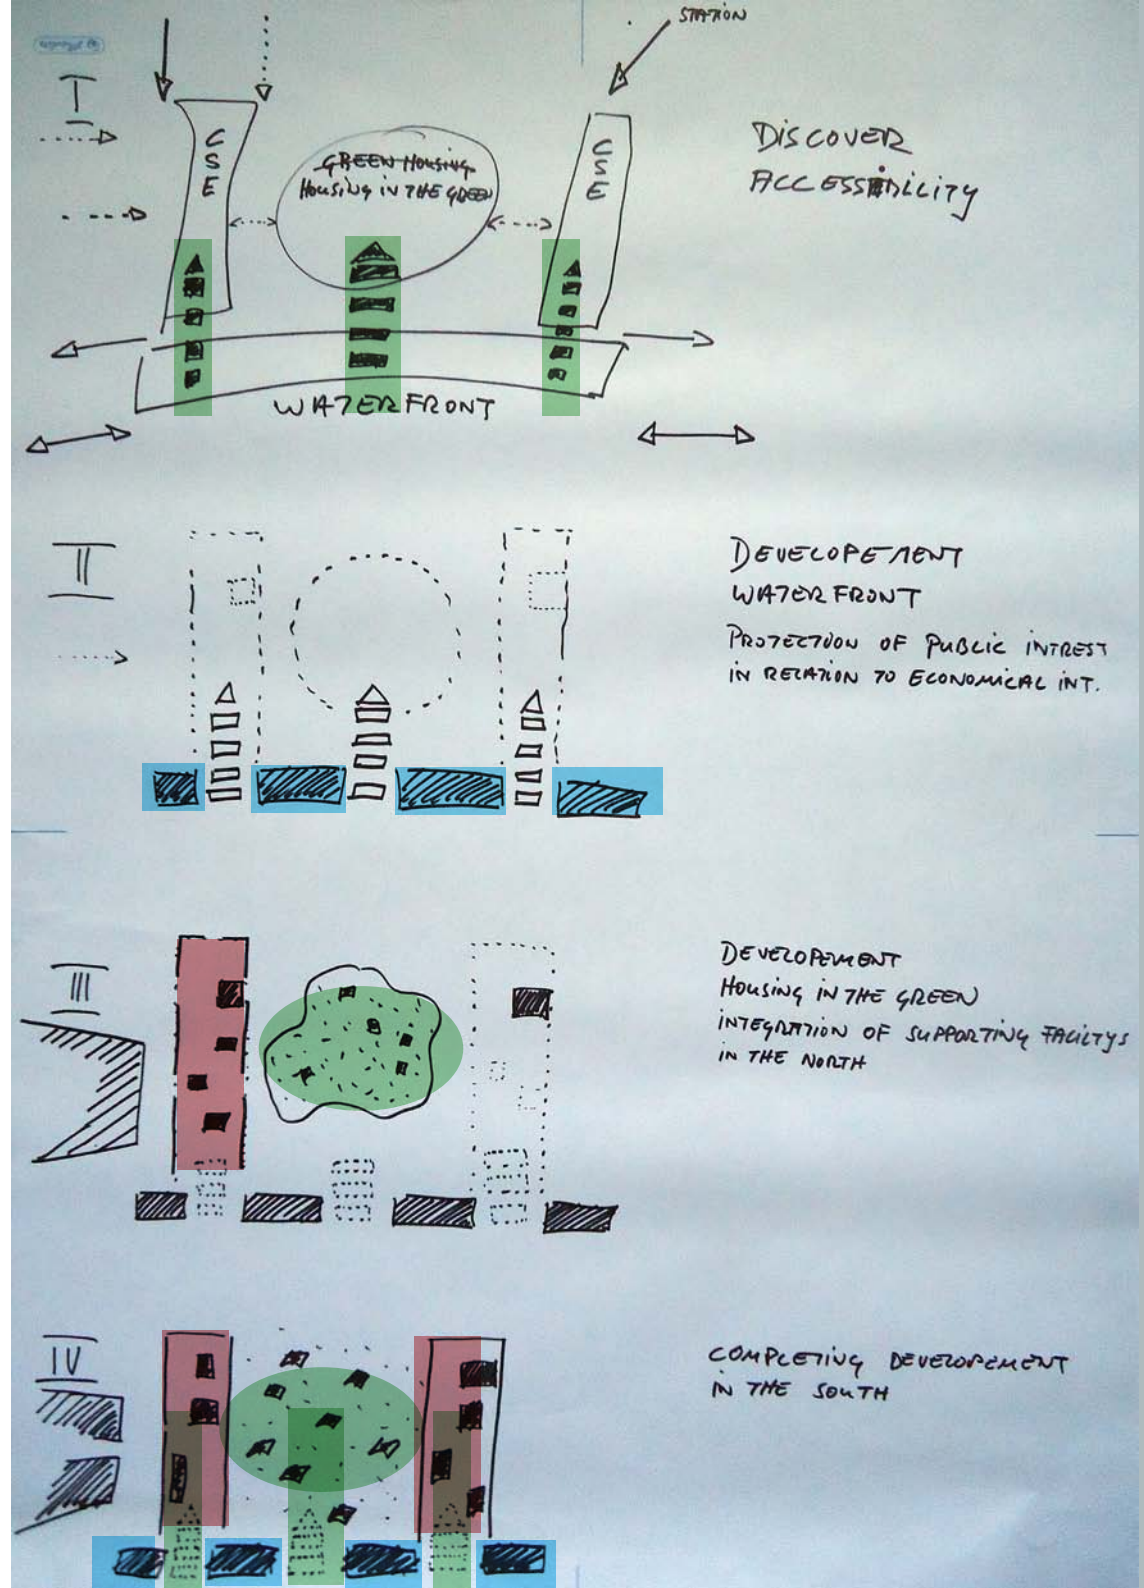 STATION
I
CSE
GREEN HOUSING
HOUSING IN THE GREEN
CSE
DISCOVER
ACCESSIBILITY
WATERFRONT
II
DEVELOPEMENT
WATERFRONT
PROTECTION OF PUBLIC INTREST
IN RELATION TO ECONOMICAL INT.
III
DEVELOPEMENT
HOUSING IN THE GREEN
INTEGRATION OF SUPPORTING FACILTYS
IN THE NORTH
IV
COMPLETING DEVELOPEMENT
IN THE SOUTH